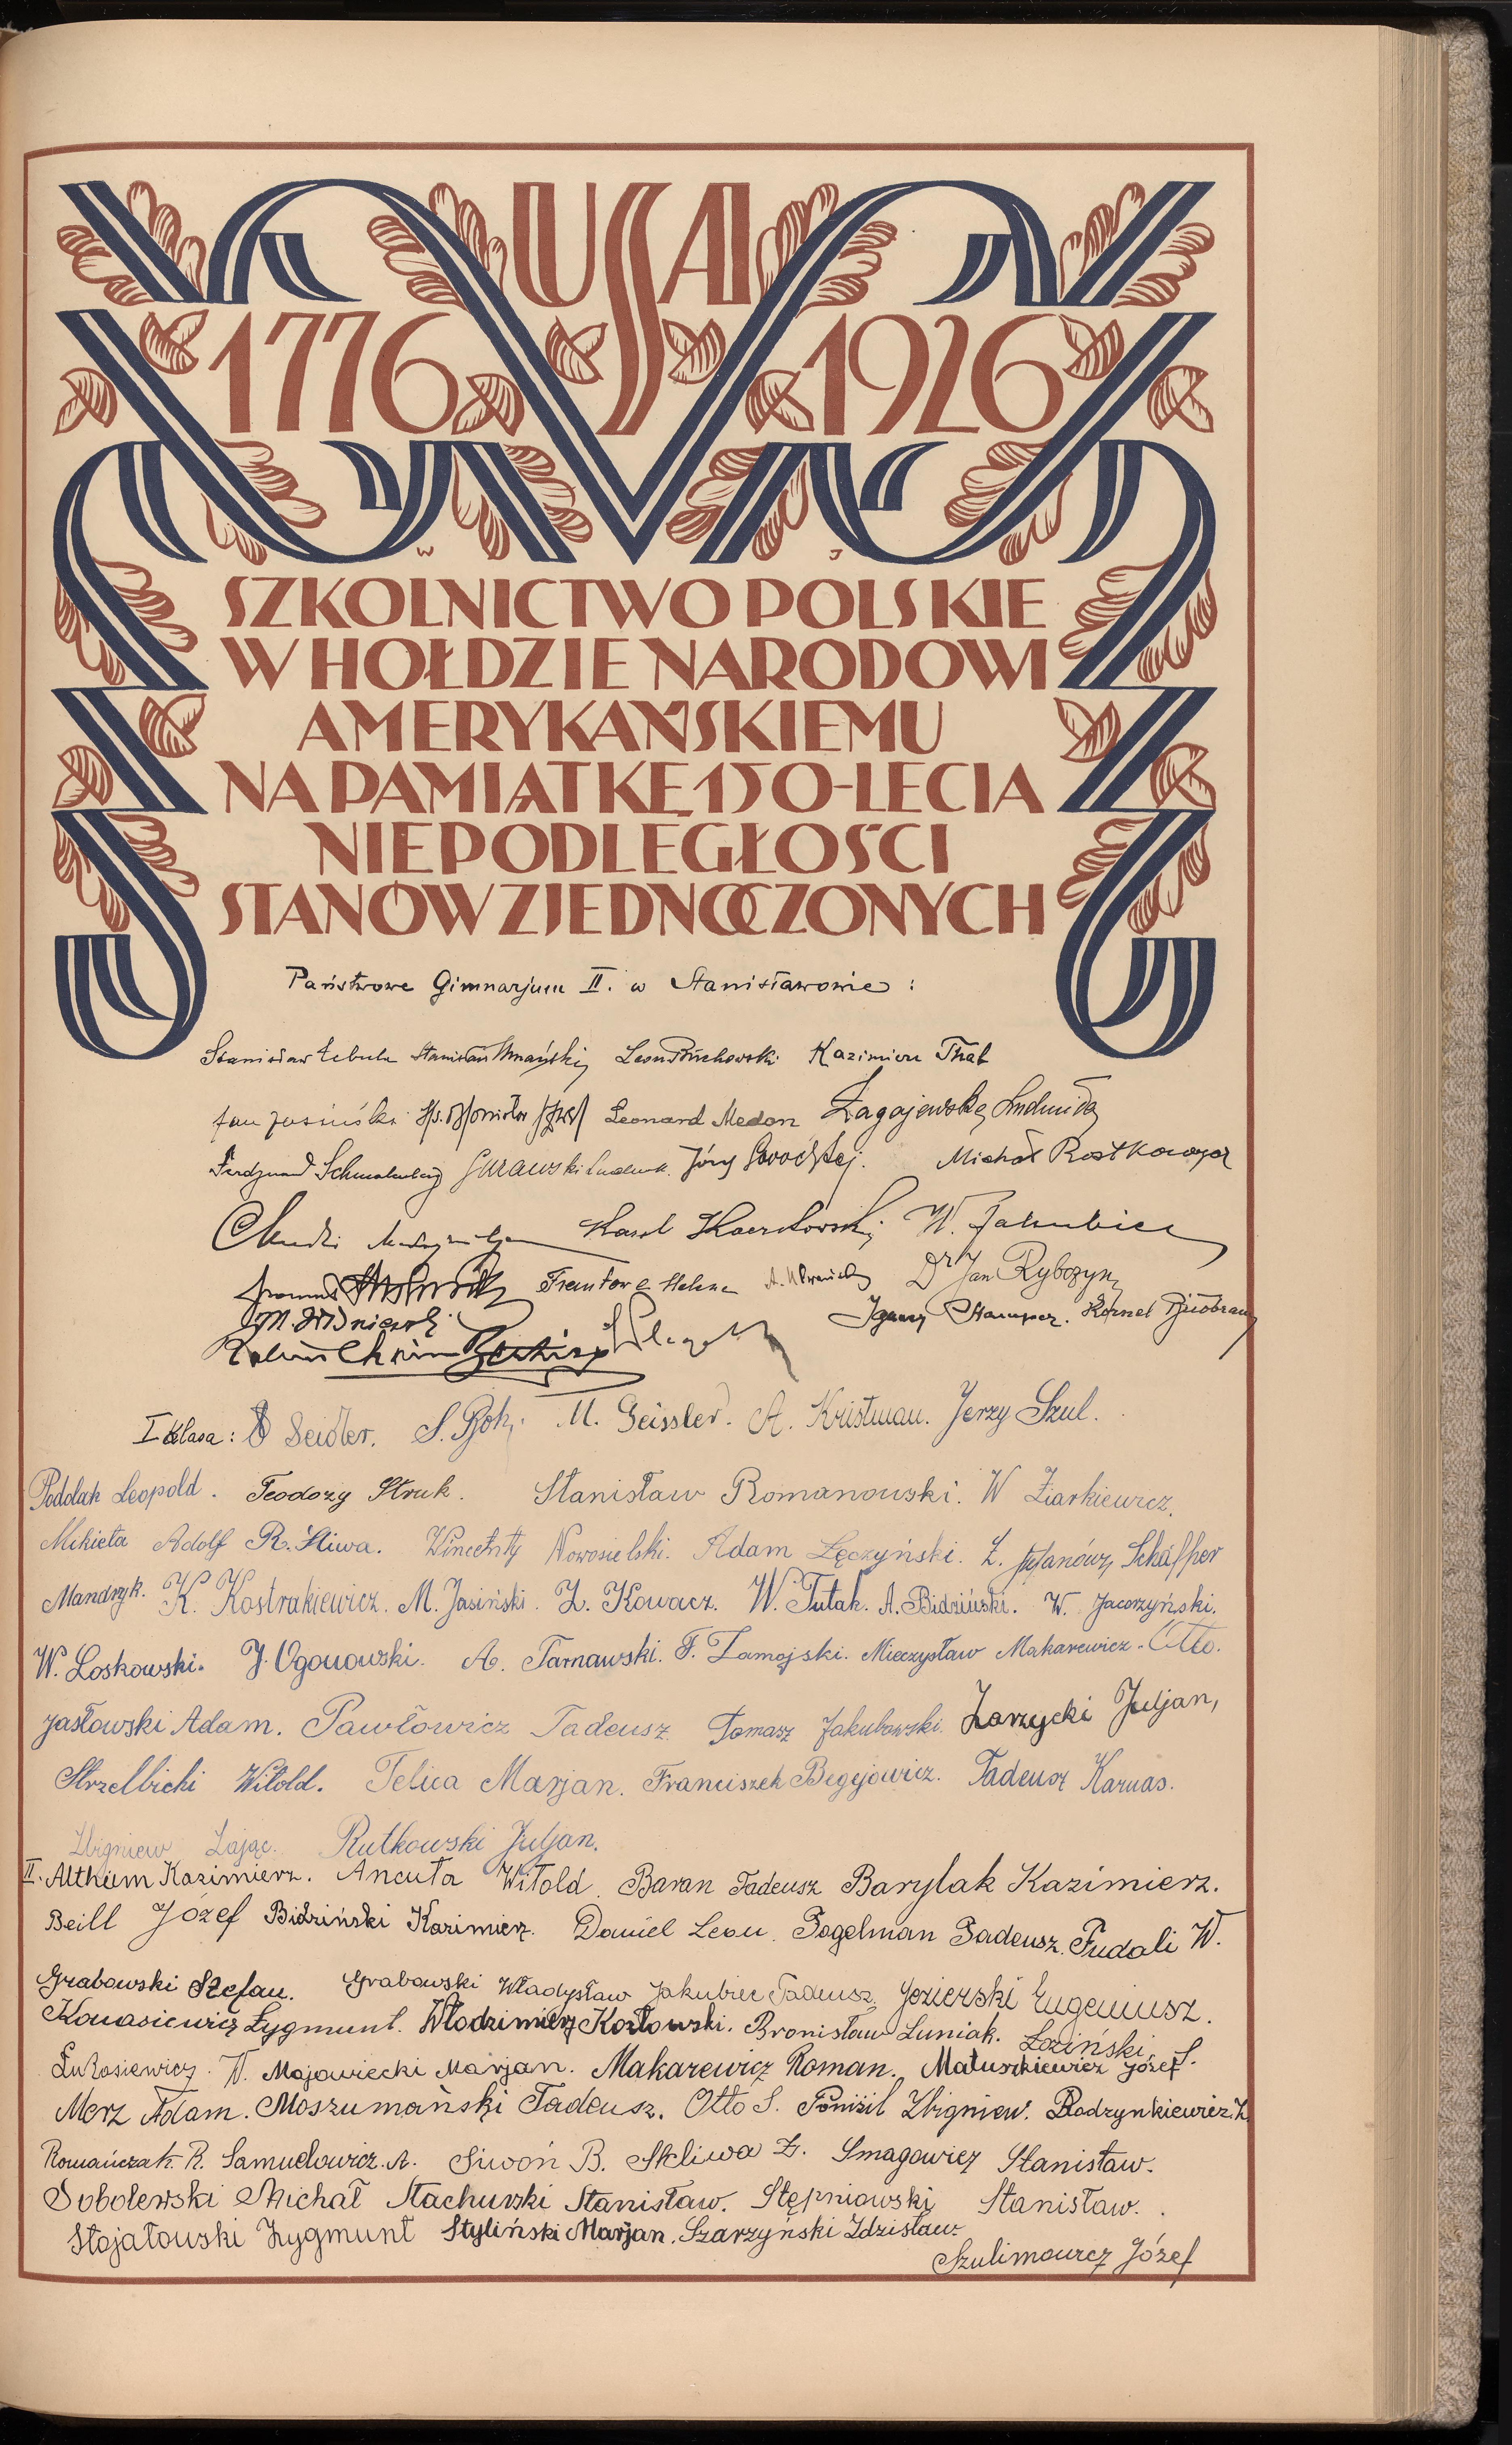 USA
1776 1926
W J
SZKOLNICTWO POLSKIE
W HOŁDZIE NARODOWI
AMERYKAŃSKIEMU
NA PAMIĄTKĘ 150-LECIA
NIEPODLEGŁOŚCI
STANÓW ZJEDNOCZONYCH
Państwowe Gimnazjum II. w Stanisławowie :
Stanisław Łebula Stanisław Leon Kazimierz Thal
Jan Jasiński Leonard Medon Zagajewska Ludmiła
Ferdynand Gurawski Jerzy Michał
Karol W. Jakubiec
Helena Dr Jan Rybczyn
Ignacy Kornel
I klasa : Seidler. S. M. Geissler. A. Kristman. Jerzy Szul.
Podolak Leopold. Teodozy Struk. Stanisław Romanowski. W Ziarkiewicz.
Mikieta Adolf R. Śliwa. Wincenty Nowosielski. Adam Łęczyński. Z. Schäffer
Mandryk. K. Kostrakiewicz. M. Jasiński. Z. Kowacz. W. Tutak. A. Bidziński. W. Jacorzyński.
W. Loskowski. J. Ogonowski. A. Tarnawski. F. Zamojski. Mieczysław Makarewicz. Otto.
Jasłowski Adam. Pawłowicz Tadeusz. Tomasz Jakubowski. Zarzycki Juljan,
Strzelbicki Witold. Telica Marjan. Franciszek Begejowicz. Tadeusz Karnas.
Zbigniew Zając. Rutkowski Juljan.
II. Althüm Kazimierz. Ancuta Witold. Baran Tadeusz Barylak Kazimierz.
Beill Józef Bidziński Kazimierz. Daniel Leon. Fogelman Tadeusz. Fudali W.
Grabowski Stefan. Grabowski Władysław Jakubiec Tadeusz, Jezierski Eugeniusz.
Konasiewicz Zygmunt. Włodzimierz Kozłowski. Bronisław Łuniak. Łoziński S.
Łukasiewicz W. Majowiecki Marjan. Makarewicz Roman. Matuszkiewicz Józef
Merz Adam. Moszumański Tadeusz. Otto S. Poniżil Zbigniew. Radzynkiewicz Z.
Romańczak R. Samuelowicz A. Siwoń B. Skliwa Z. Smagowicz Stanisław.
Sobolewski Michał Stachurski Stanisław. Stępniowski Stanisław.
Stojałowski Zygmunt Styliński Marjan. Szarzyński Zdzisław
Szulimowicz Józef